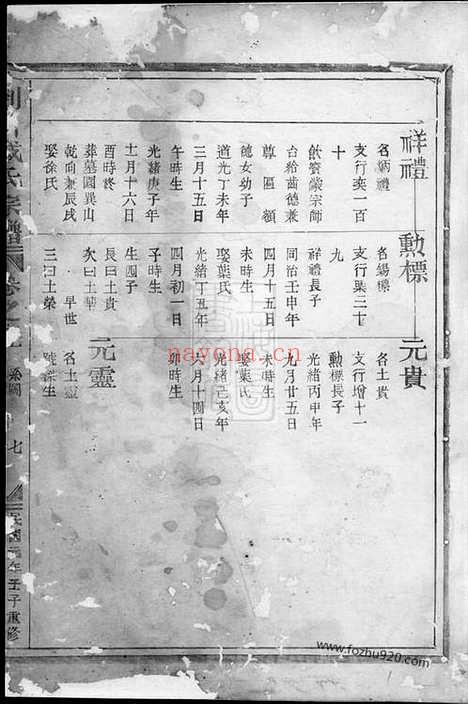 祥禮
名炳禮
支行奕一百
十
飲賓蒙宗師
台給齒德兼
尊區額
德女幼子
道光丁未年
三月十五日
午時生
光緒庚子年
十一月十六日
酉時終
葬墓園巽山
乾向兼辰戌
娶徐氏
勲標
名錫標
支行葉三十
九
祥禮長子
同治壬申年
四月十五日
未時生
娶葉氏
光緒丁丑年
四月初一日
子時生
生四子
長曰土貴
次曰土華
早世
三曰土榮
元貴
名土貴
支行增十一
勲標長子
光緒丙申年
九月廿五日
未時生
娶葉氏
光緒己亥年
六月十四日
卯時生
元靈
名土靈
氏宗譜
卷之
七
民國元年壬子重修
nayona.cn
www.fozhu920.com